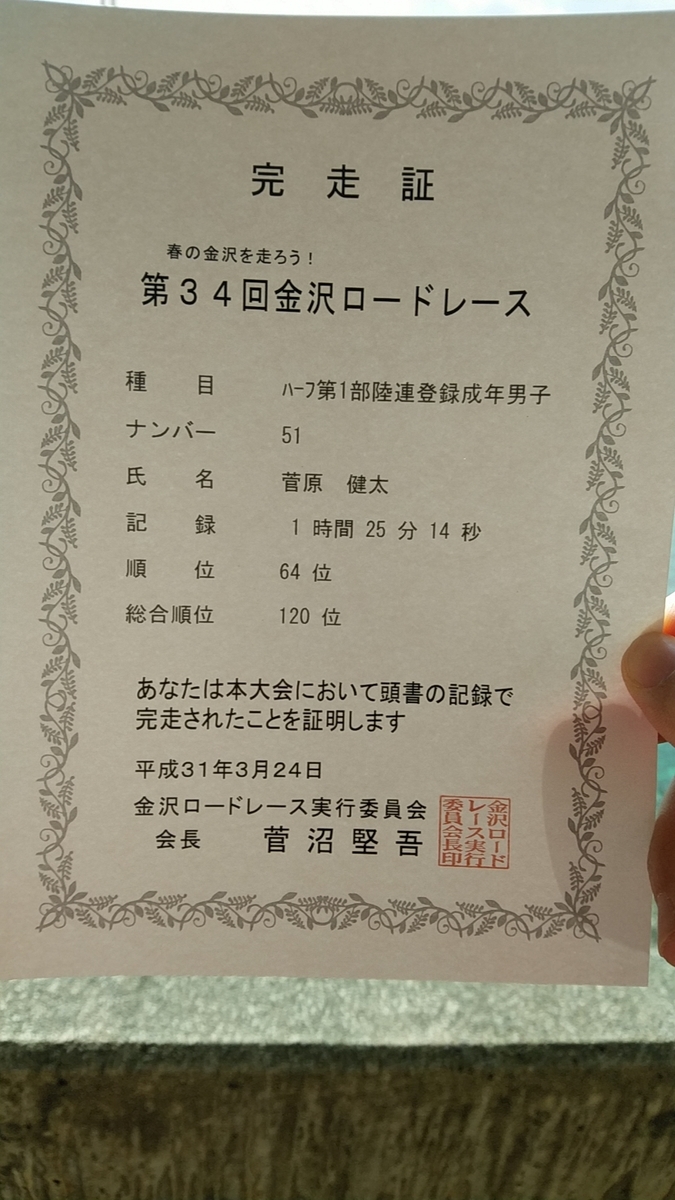 完走証
春の金沢を走ろう!
第34回金沢ロードレース
種目 ﾊｰﾌ第1部陸連登録成年男子
ナンバー 51
氏名 菅原 健太
記録 1 時間 25 分 14 秒
順位 64 位
総合順位 120 位
あなたは本大会において頭書の記録で
完走されたことを証明します
平成31年3月24日
金沢ロードレース実行委員会
会長 菅沼堅吾
金沢ロード
レース実行
委員会長印